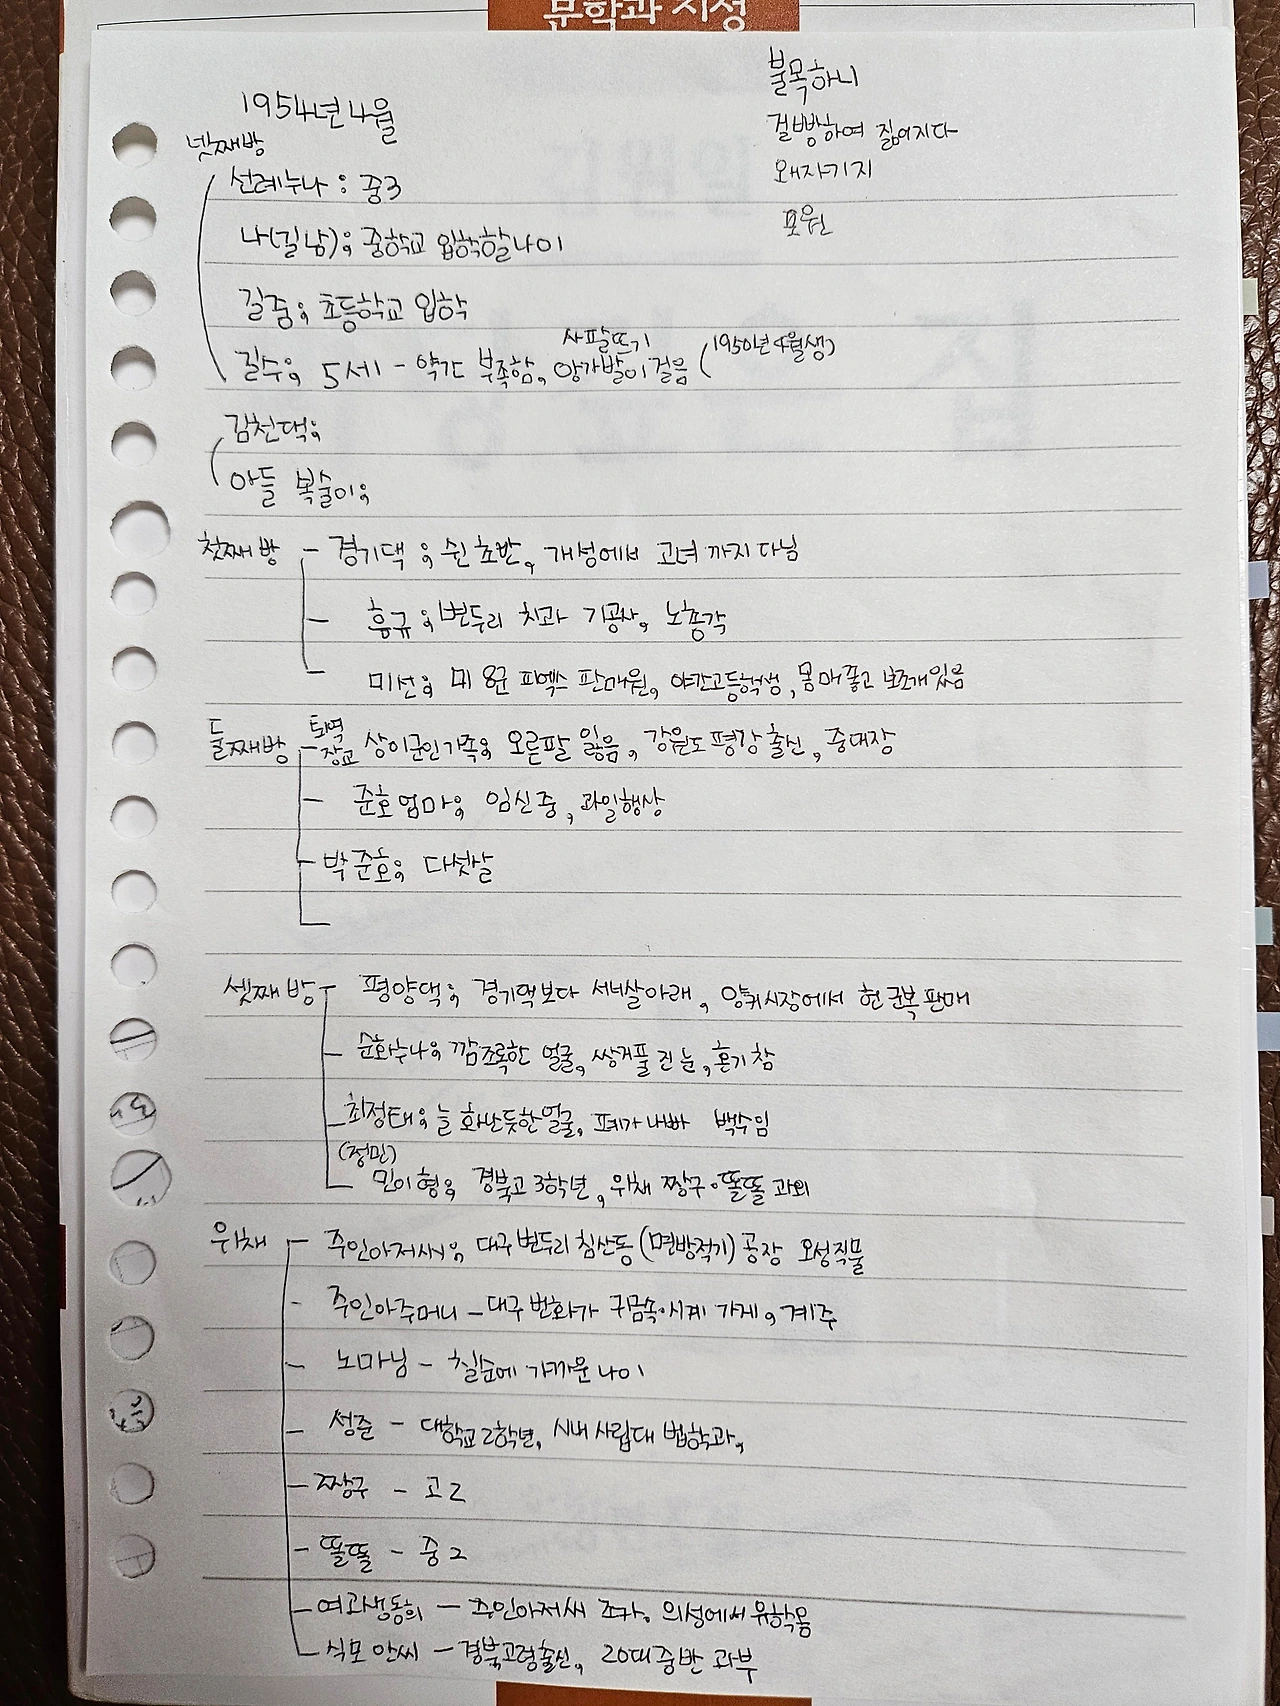 문학과 지성
불목하니
1954년 4월
걸빵하여 짊어지다
넷째방
왜자기지
선례누나 : 중3
포원
나(길남); 중학교 입학할나이
길중; 초등학교 입학
사팔뜨기
길수; 5세 - 약간 부족함, 앙가발이 걸음 (1950년 4월생)
김천댁;
아들 복술이;
첫째방 - 경기댁; 쉰 초반, 개성에서 고녀까지 다님
- 흥규; 변두리 치과 기공사, 노총각
미선; 미 8군 피엑스 판매원, 야간고등학생, 몸매좋고 보조개있음
둘째방 - 퇴역장교 상이군인가족; 오른팔 잃음, 강원도 평강 출신, 중대장
- 준호엄마; 임신중, 과일행상
- 박준호; 다섯살
셋째방 - 평양댁; 경기댁보다 서너살아래, 양키시장에서 헌 군복판매
- 순화누나; 갸조록한 얼굴, 쌍거풀 진 눈, 혼기 참
- 최정태; 늘 화난듯한얼굴, 폐가 나빠 백수임
(정민)
민이형; 경북고 3학년, 위채 짱구·똘똘 과외
위채 - 주인아저씨; 대구변두리 침산동 (면방적기) 공장 오성직물
- 주인아주머니 - 대구 번화가 귀금속·시계 가게, 계주
- 노마님 - 칠순에 가까운 나이
- 성준 - 대학교 2학년, 시내 사립대 법학과,
- 짱구 - 고2
- 똘똘 - 중2
- 여고생동희 - 주인아저씨 조카, 의성에서 유학옴
- 식모 안씨 - 경북고령출신, 20대중반 과부